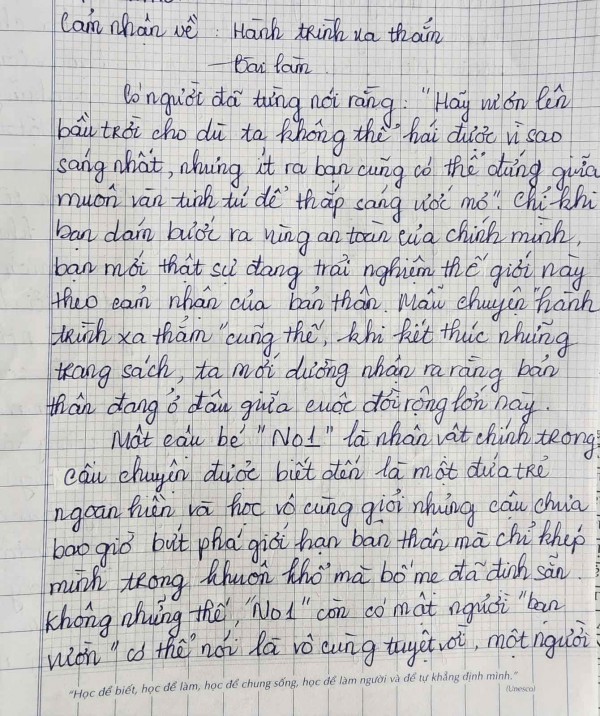 Cảm nhận về : Hành trình xa thẳm
Bài làm
Có người đã từng nói rằng : "Hãy vươn lên
bầu trời cho dù ta không thể hái được vì sao
sáng nhất, nhưng ít ra bạn cũng có thể đứng giữa
muôn vàn tinh tú để thắp sáng ước mơ". Chỉ khi
bạn dám bước ra vùng an toàn của chính mình,
bạn mới thật sự đang trải nghiệm thế giới này
theo cảm nhận của bản thân. Mẩu chuyện "hành
trình xa thẳm" cũng thế, khi kết thúc những
trang sách, ta mới dường nhận ra rằng bản
thân đang ở đâu giữa cuộc đời rộng lớn này.
Một cậu bé "No1" là nhân vật chính trong
câu chuyện được biết đến là một đứa trẻ
ngoan hiền và học vô cùng giỏi nhưng cậu chưa
bao giờ bứt phá giới hạn bản thân mà chỉ khép
mình trong khuôn khổ mà bố mẹ đã định sẵn.
Không những thế, "No1" còn có một người "bạn
vườn" có thể nói là vô cùng tuyệt vời, một người
"Học để biết, học để làm, học để chung sống, học để làm người và để tự khẳng định mình."
(Unesco)